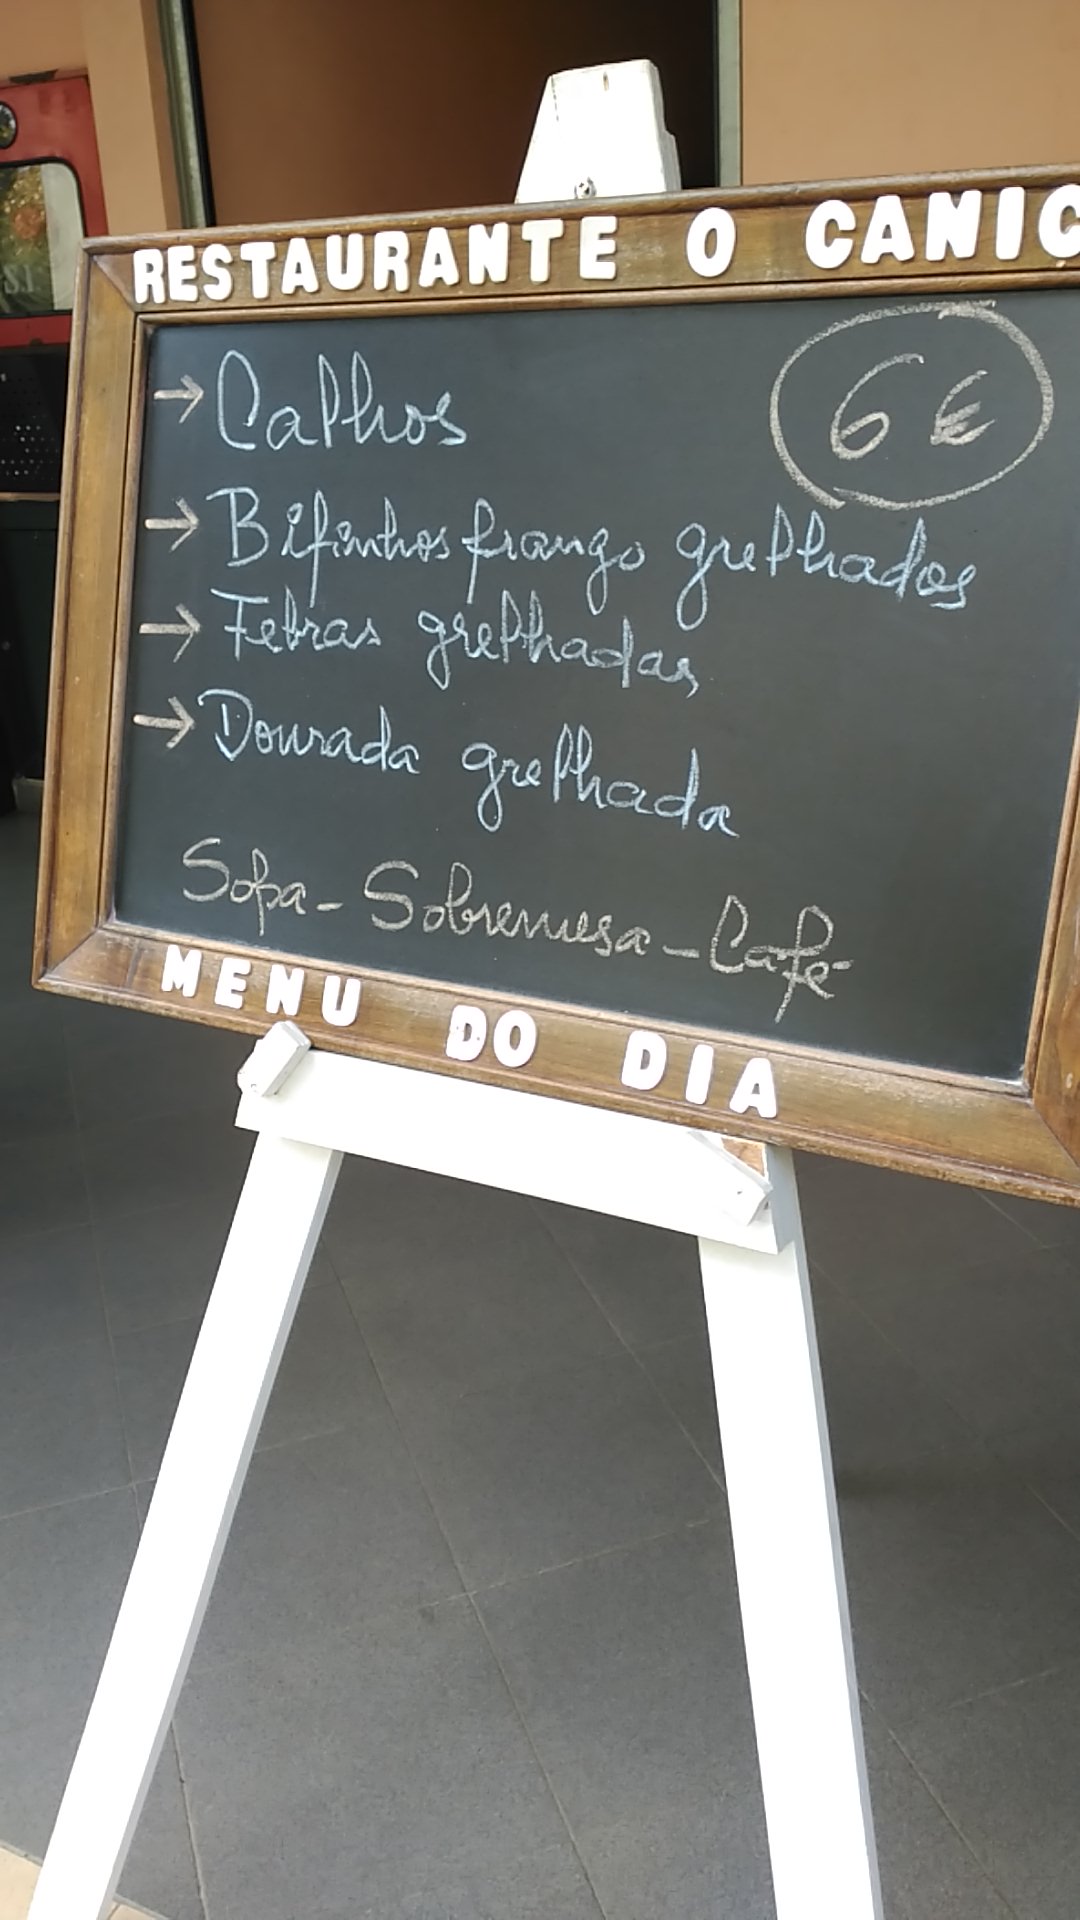 RESTAURANTE O CANIÇ
6 €
→ Calhos
→ Bifinhos frango grelhados
→ Febras grelhadas
→ Dourada grelhada
Sopa - Sobremesa - Café
MENU DO DIA